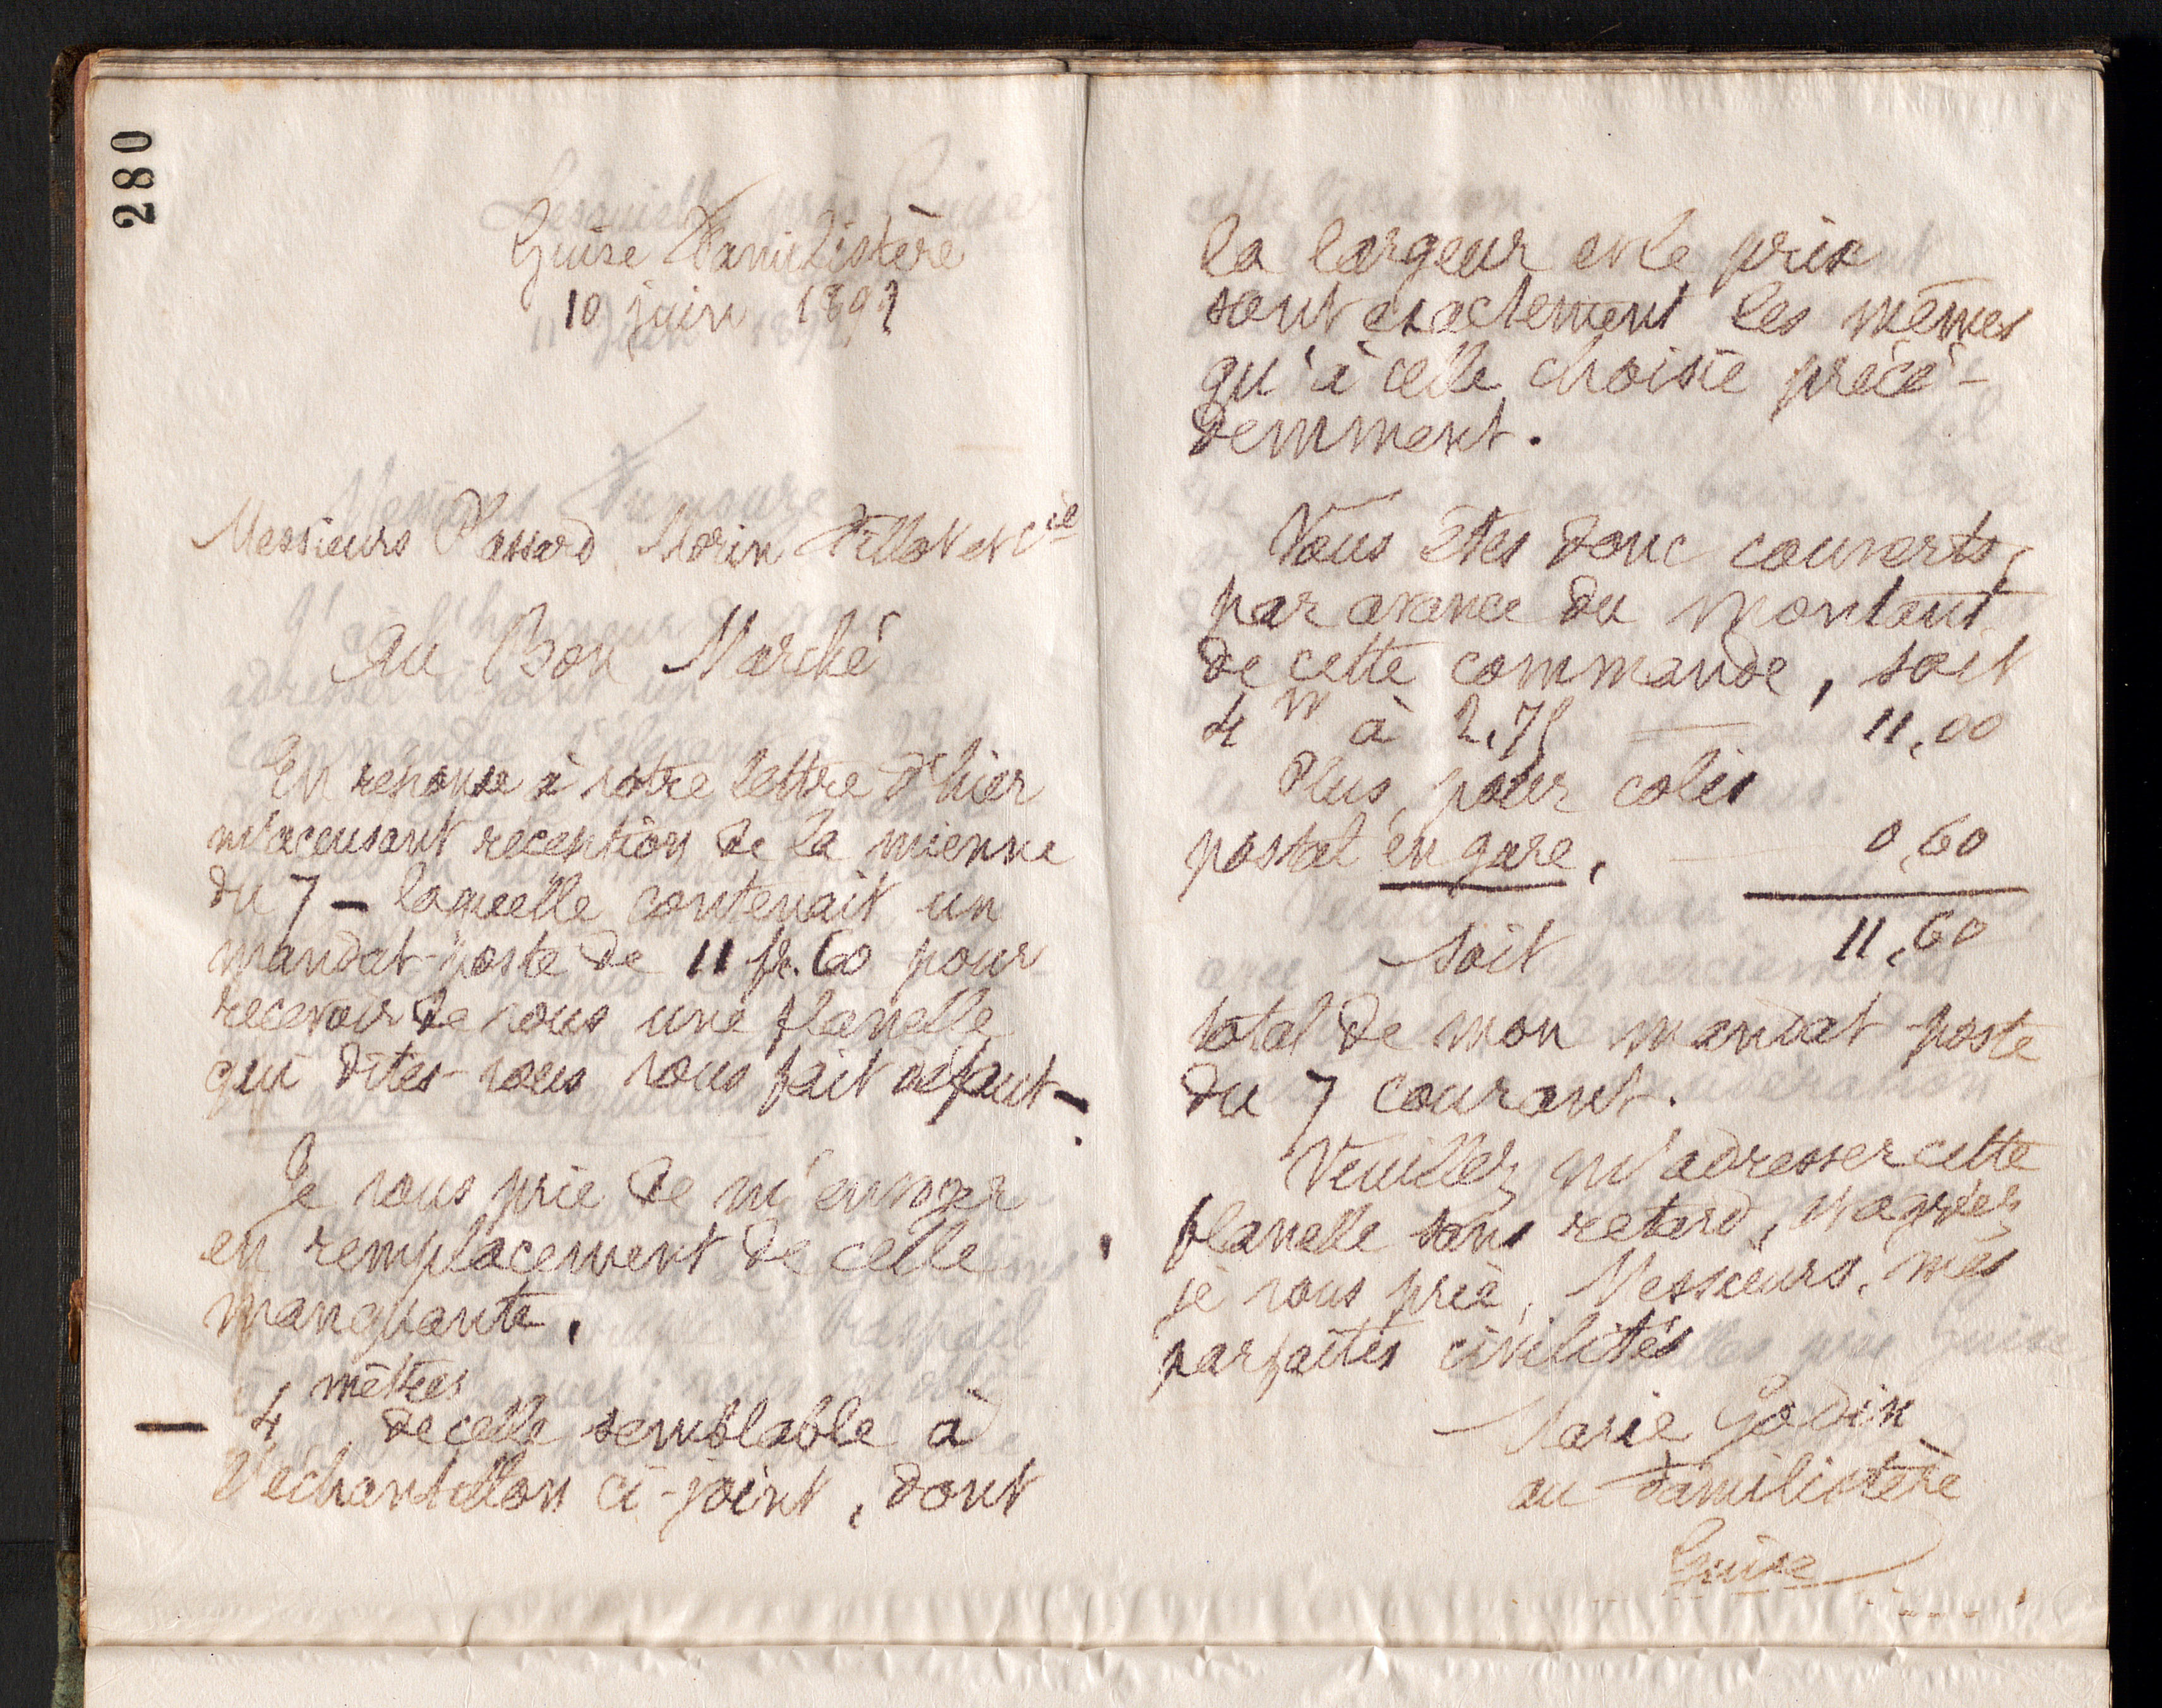 280
Guise Familistère
10 juin 1892
Messieurs Plassard Morin Fillot et Cie
Au Bon Marché
En réponse à votre lettre d'hier
m'accusant réception de la mienne
du 7 — laquelle contenait un
mandat-poste de 11 fr. 60 pour
recevoir de vous une flanelle
qui dites-vous vous fait défaut —
Je vous prie de m'envoyer
en remplacement de celle
manquante,
mètres
— 4 de celle semblable à
l'échantillon ci-joint, dont
la largeur et le prix
sont exactement les mêmes
qu'à celle choisie précé-
demment.
Vous êtes donc couverts,
par avance du montant
de cette commande, soit
4 m à 2,75 — 11,00
Plus, pour colis
postal en gare, — 0,60
soit 11,60
total de mon mandat-poste
du 7 courant.
Veuillez m'adresser cette
flanelle sans retard, et agréez,
je vous prie, Messieurs, mes
parfaites civilités
Marie Godin
au Familistère
Guise